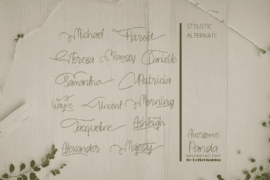 Michael Harold
STYLISTIC
ALTERNATE
Teresa Ramsey Danielle
Samantha Patricia
Wayne Vincent Morning
Jacqueline Ashleigh
Alexander Majesty
Awesome
Panda